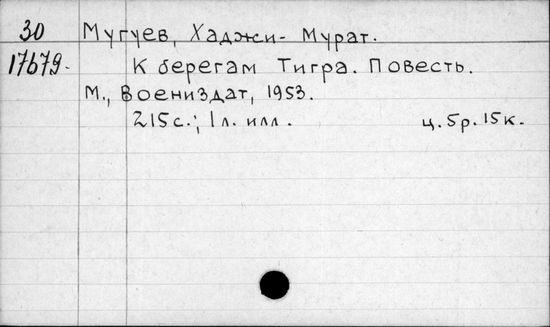 30 Мугуев, Хаджи- Мурат.
17679. К берегам Тигра. Повесть.
М., Воениздат, 1953.
215с.; 1л. илл. ц. 5р. 15к.